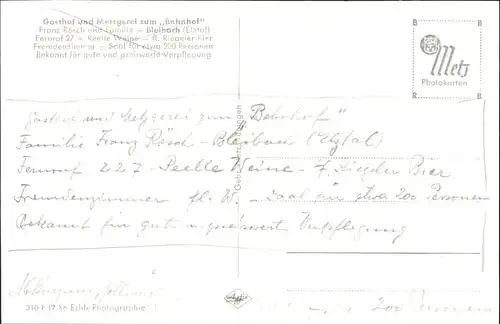 Gasthof und Metzgerei zum „Bahnhof"
Franz Rösch und Familie – Bleibach (Elztal)
Fernruf 27 – Reelle Weine – ff. Riegeler Bier
Fremdenzimmer – Saal für etwa 200 Personen
Bekannt für gute und preiswerte Verpflegung
B B
Metz
Photokarten
R R
Gebr. Metz, Tübingen
Gasterei und Metzgerei zum „Bahnhof"
Familie Franz Rösch – Bleibach (Elztal)
Fernruf 227 – Reelle Weine – ff. Riegeler Bier
Fremdenzimmer fl. W. – Saal für etwa 200 Personen
Bekannt für gute u. preiswert Verpflegung
Echte Photographie
200 Personen